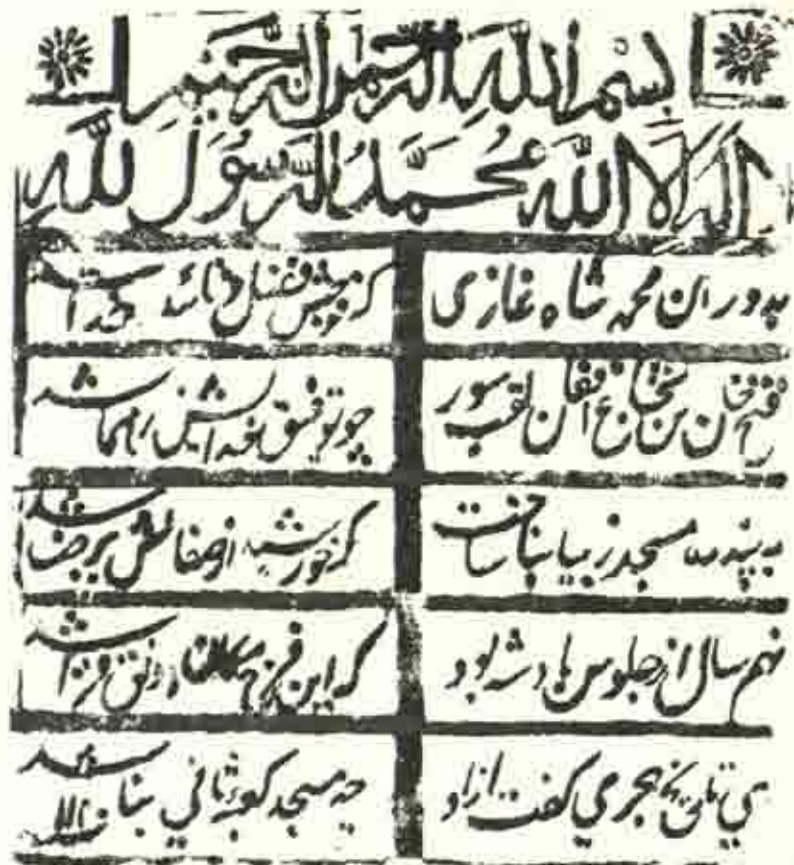 بسم الله الرحمن الرحيم
لا اله الا الله محمد الرسول لله
بدوران محمد شاه غازی که فضل خدا شد
فتح خان بن شجاع افغان لقب سور چو توفیق خدایش رهنما شد
مسجد زیبا بنا ساخت که خورشید از صفایش پر ضیا شد
نهم سال از جلوس پادشه بود که این فرخ مکان رونق فزا شد
پی تاریخ هجری گفت ازاد چه مسجد کعبهٔ ثانی بنا شد